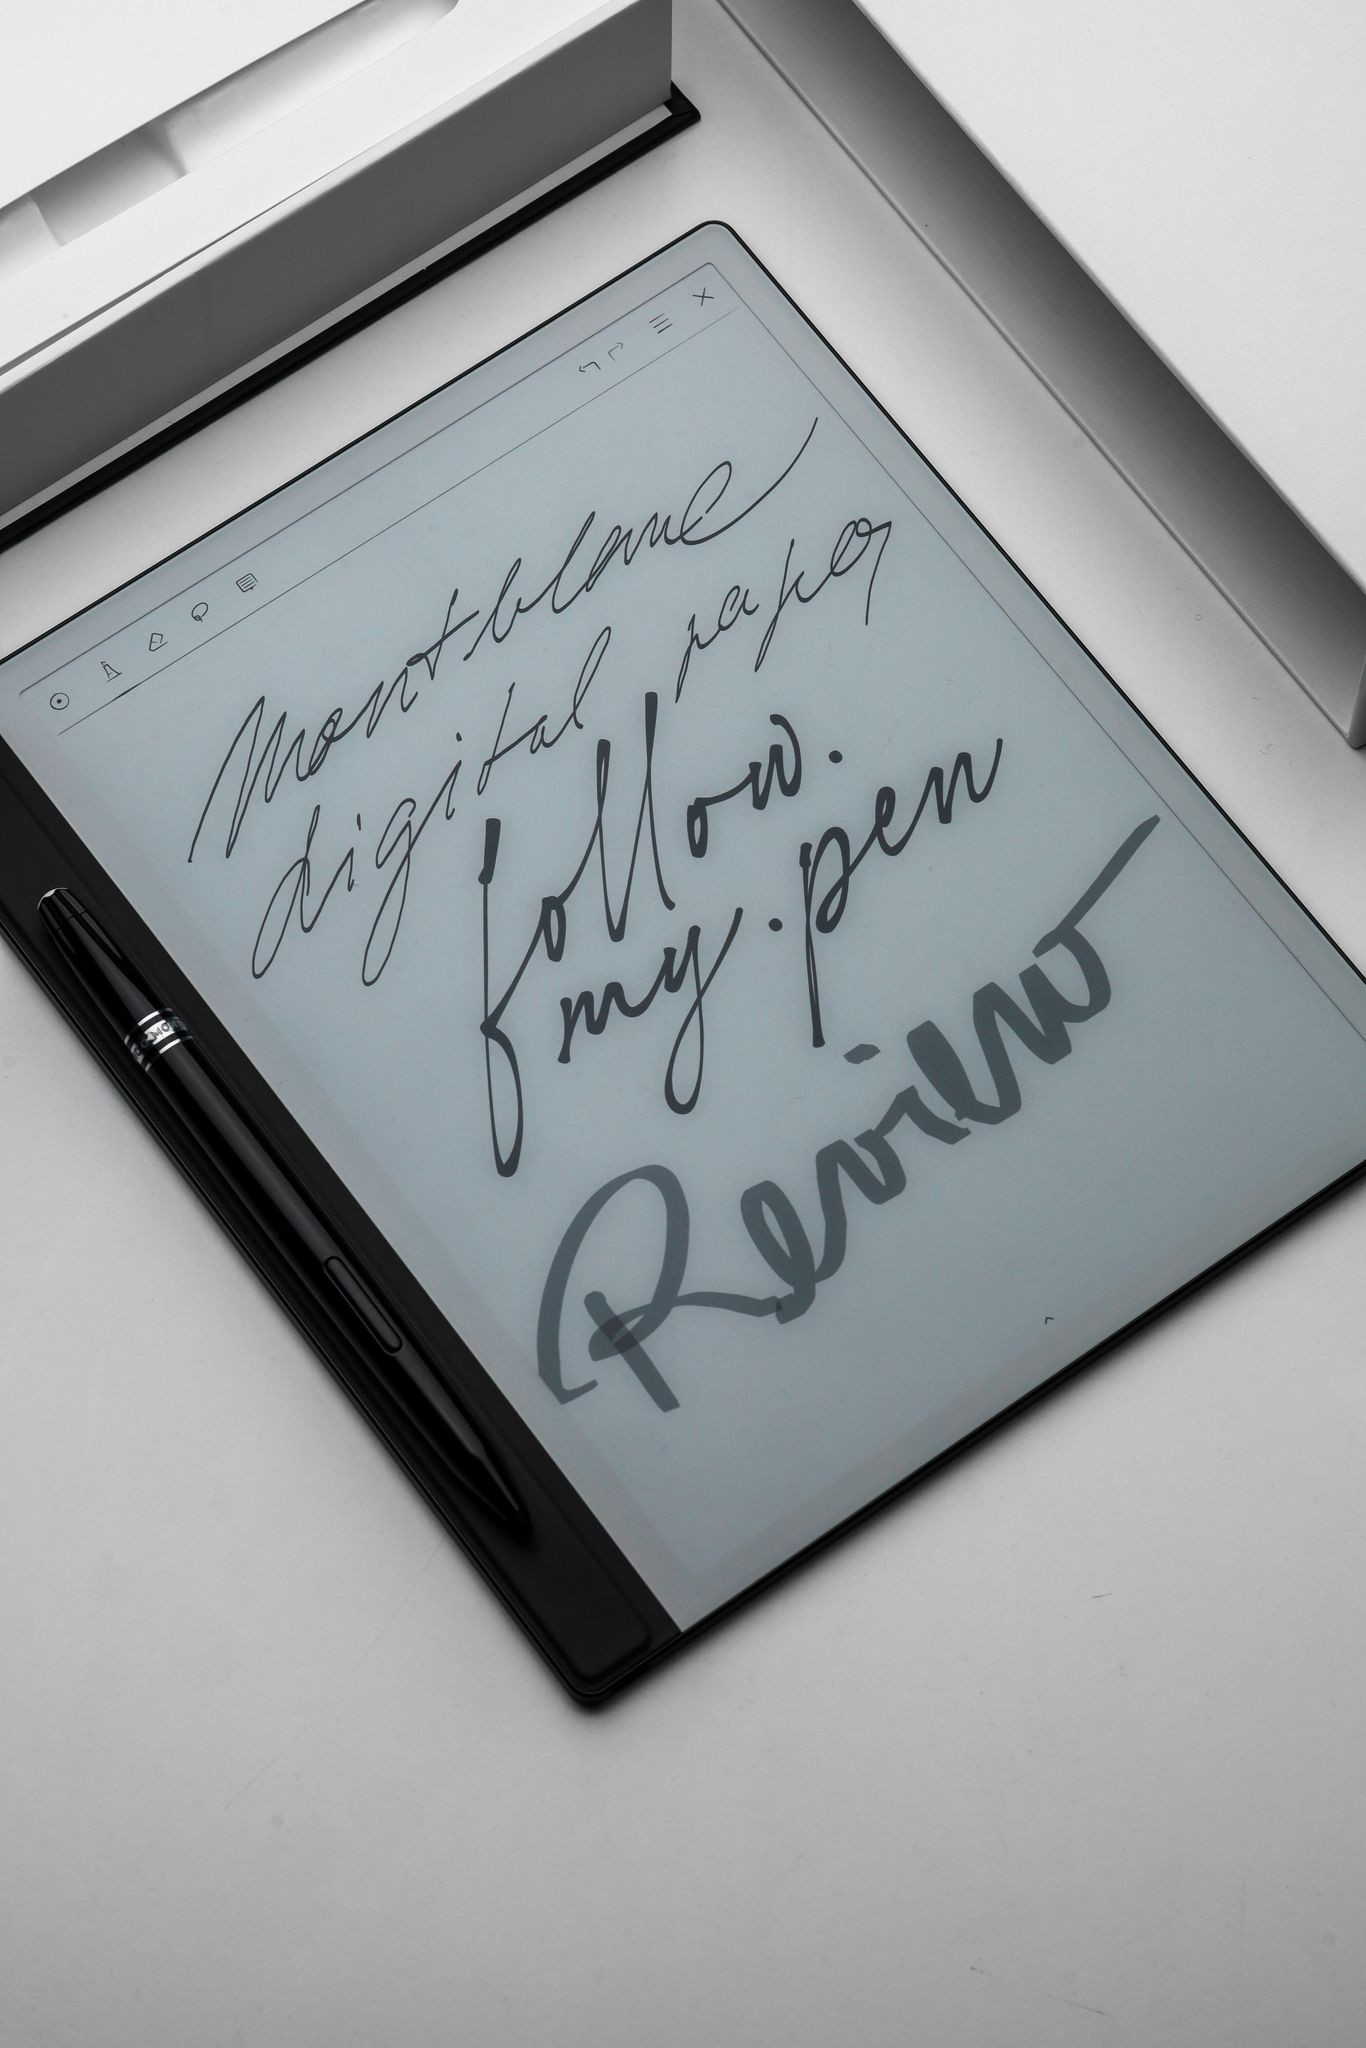 Montblanc
digital paper
follow.
my.pen
Review